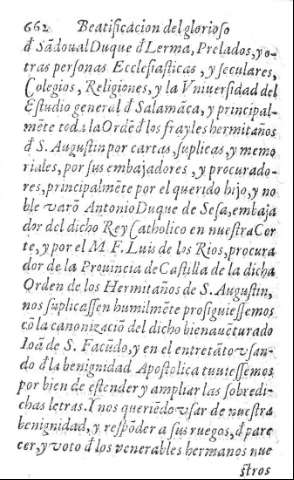 662 Beatificacion del glorioso
d̃ Sãdoual Duque d̃ Lerma, Prelados, y o-
tras personas Ecclesiasticas, y seculares,
Colegios, Religiones, y la Vniuersidad del
Estudio general d̃ Salamãca, y principal-
mẽte toda la Ordẽ d̃ los frayles hermitaños
d̃ S. Augustin por cartas, suplicas, y memo
riales, por sus embajadores, y procurado-
res, principalmẽte por el querido hijo, y no
ble varõ Antonio Duque de Sesa, embaja
dor del dicho Rey Catholico en nuestra Cor
te, y por el M. F. Luis de los Rios, procura
dor de la Prouincia de Castilla de la dicha
Orden de los Hermitaños de S. Augustin,
nos suplicassen humilmẽte prosiguiessemos
cõ la canonizaciõ del dicho bienauẽturado
Ioã de S. Facũdo, y en el entretãto vsan-
do d̃ la benignidad Apostolica tuuiessemos
por bien de estender y ampliar las sobredi-
chas letras. Y nos queriẽdo vsar de nuestra
benignidad, y respõder a sus ruegos, d̃ pare
cer, y voto d̃ los venerables hermanos nue
stros